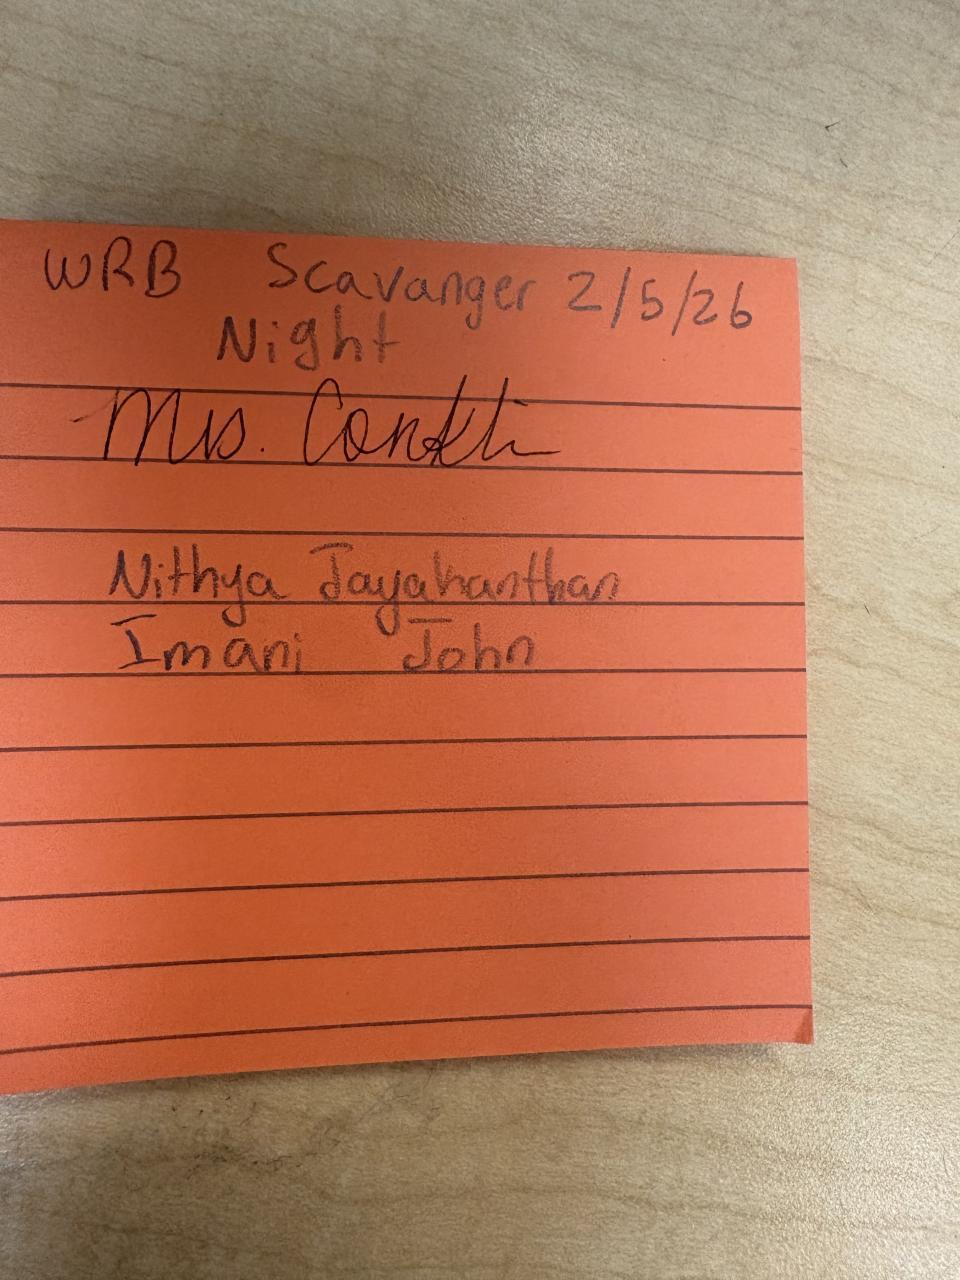 WRB Scavanger 2/5/26
Night
Mrs. Conkli
Nithya Jayakanthan
Imani John